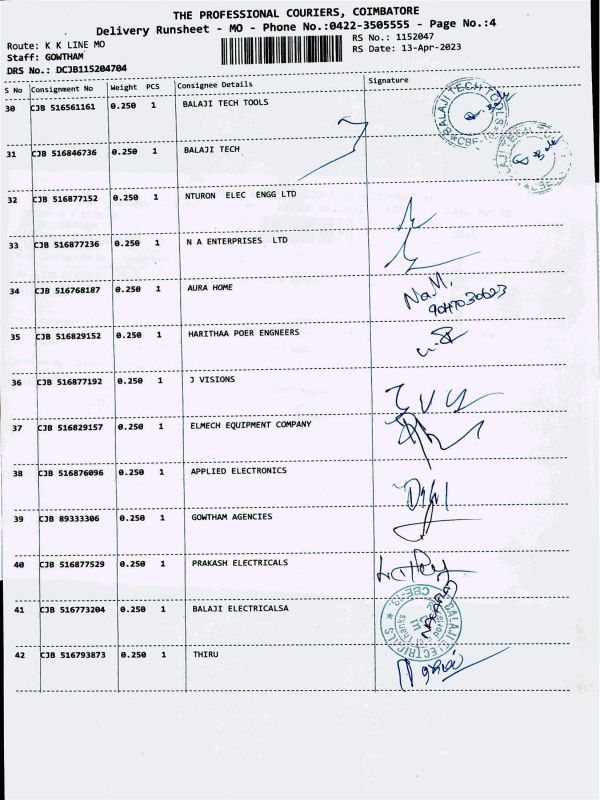 THE PROFESSIONAL COURIERS, COIMBATORE
Delivery Runsheet - MO - Phone No.:0422-3505555 - Page No.:4
Route: K K LINE MO
RS No.: 1152047
Staff: GOWTHAM
RS Date: 13-Apr-2023
DRS No.: DCJB115204704
S No Consignment No Weight PCS Consignee Details Signature
30 CJB 516561161 0.250 1 BALAJI TECH TOOLS
BALAJI TECH TOOLS CBE
31 CJB 516846736 0.250 1 BALAJI TECH
32 CJB 516877152 0.250 1 NTURON ELEC ENGG LTD
33 CJB 516877236 0.250 1 N A ENTERPRISES LTD
34 CJB 516768187 0.250 1 AURA HOME
35 CJB 516829152 0.250 1 HARITHAA POER ENGNEERS
36 CJB 516877192 0.250 1 J VISIONS
37 CJB 516829157 0.250 1 ELMECH EQUIPMENT COMPANY
38 CJB 516876096 0.250 1 APPLIED ELECTRONICS
39 CJB 89333306 0.250 1 GOWTHAM AGENCIES
40 CJB 516877529 0.250 1 PRAKASH ELECTRICALS
41 CJB 516773204 0.250 1 BALAJI ELECTRICALSA
BALAJI ELECTRICALS
42 CJB 516793873 0.250 1 THIRU